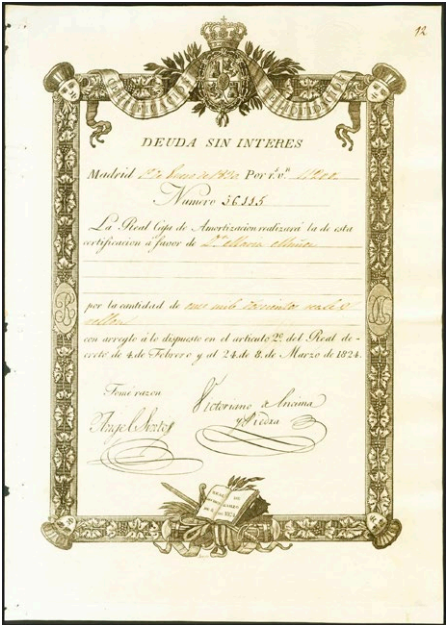 12
DEUDA SIN INTERES
Madrid 1º de Enero de 1830 Por r.s v.n
Numero 56.115
La Real Caja de Amortizacion realizará la de esta
certificacion á favor de D.n Maria
por la cantidad de once mil doscientos reales
vellon
con arreglo á lo dispuesto en el articulo 2º. del Real de-
creto de 4 de Febrero y al 24 de 8. de Marzo de 1824.
Tomé razon
Victoriano de Encima
y Piedra
Angel